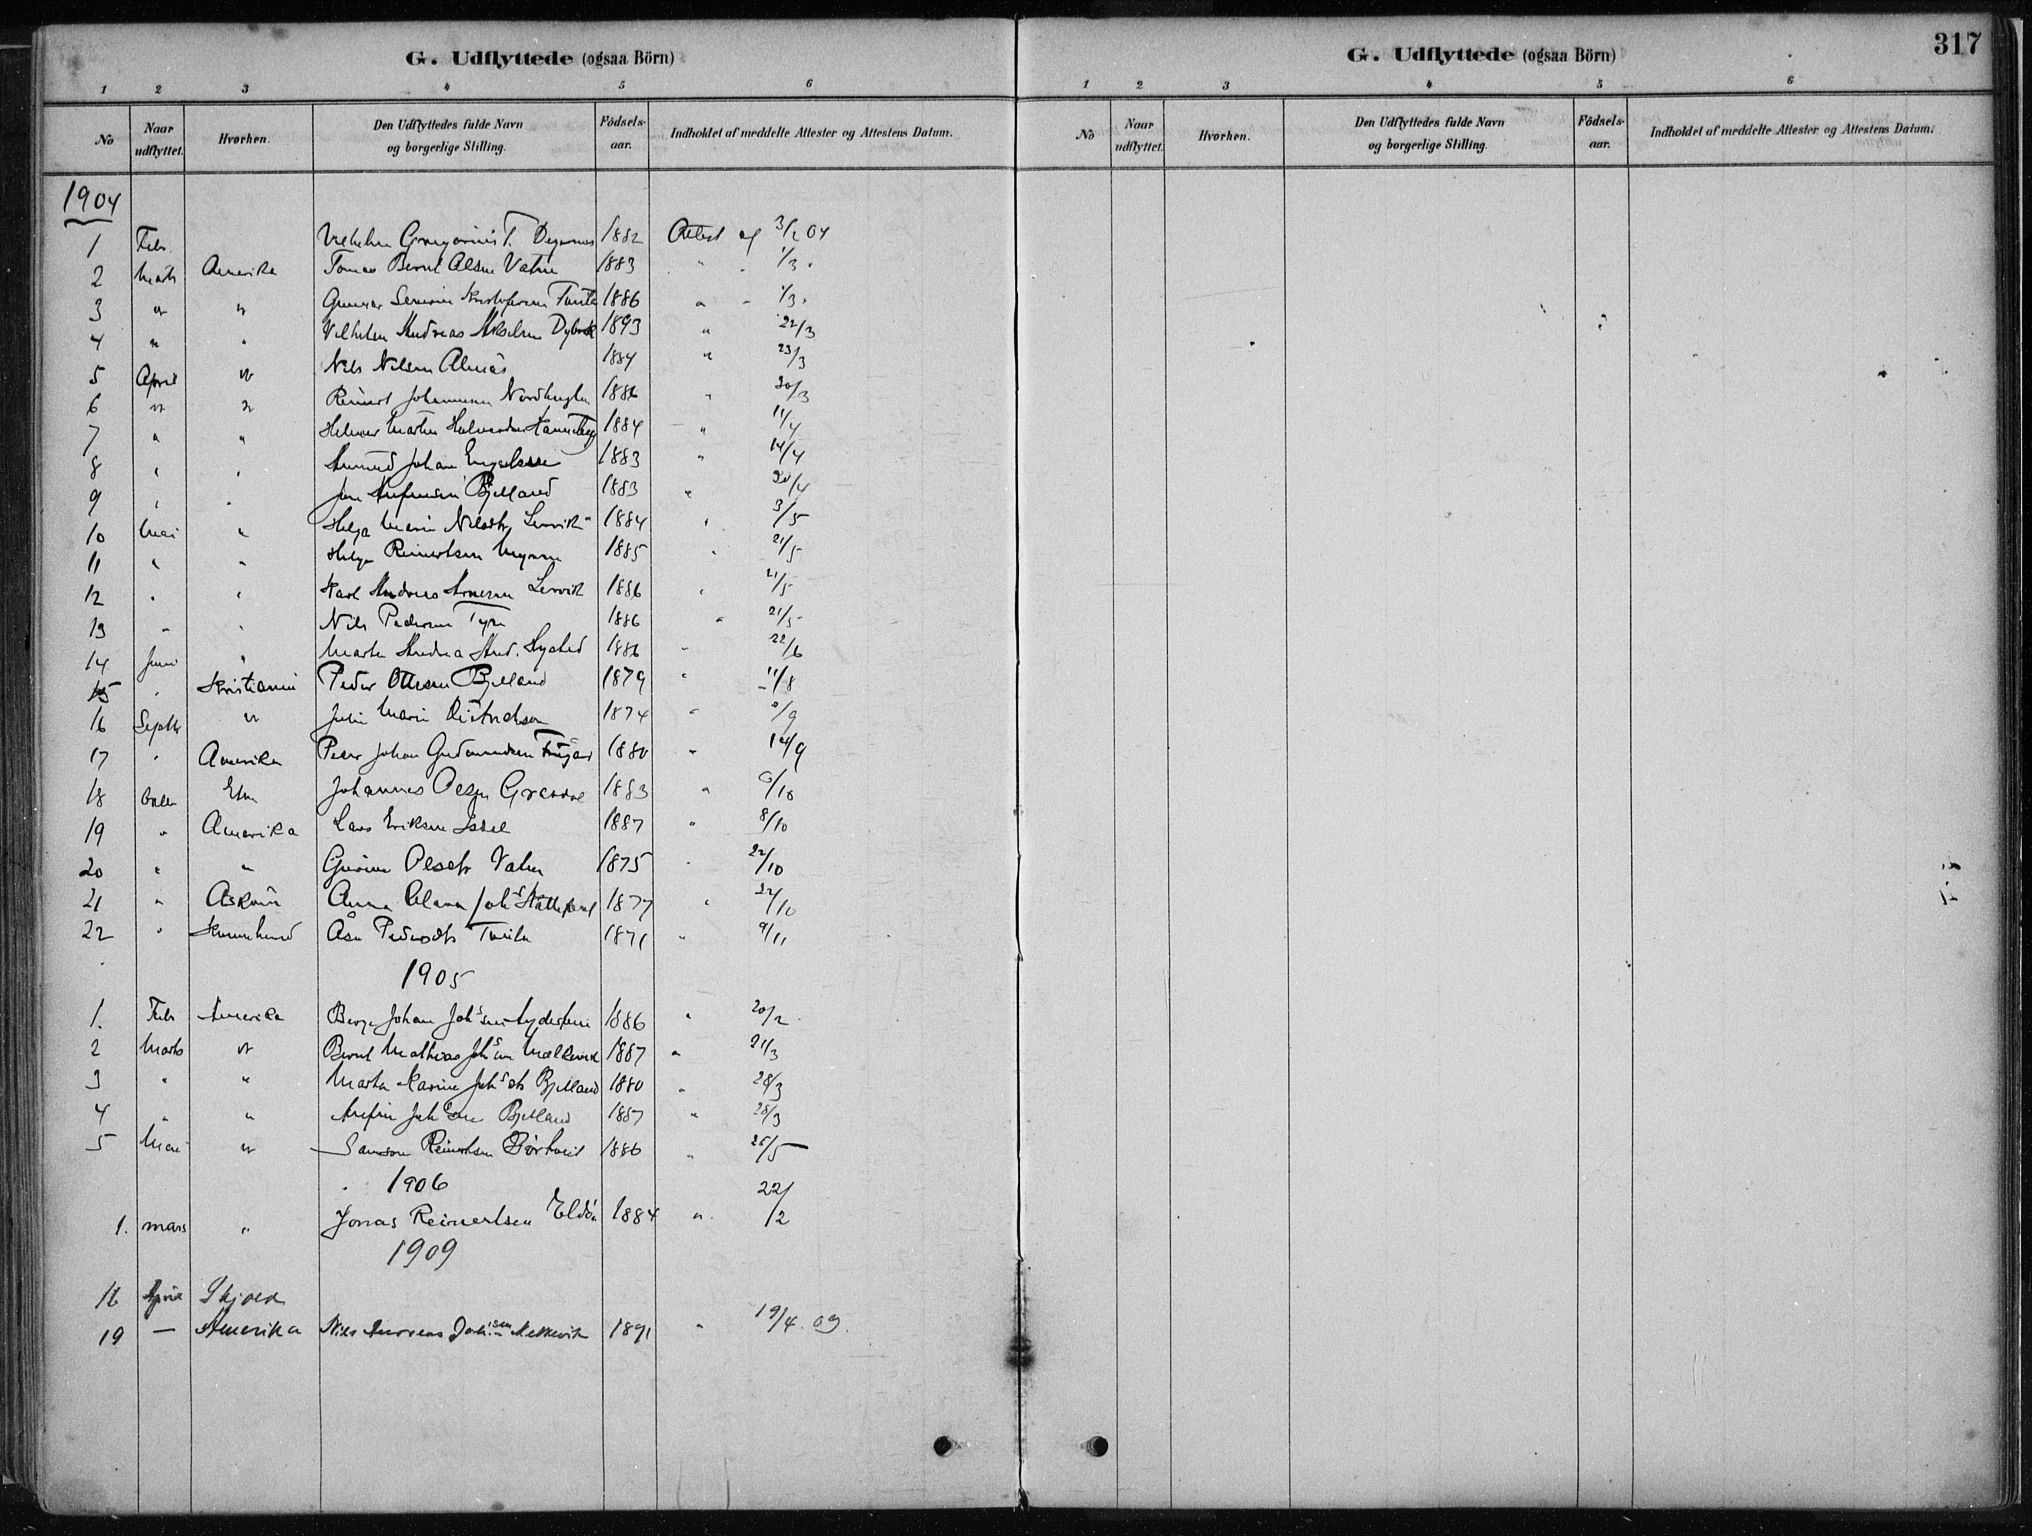 G. Udflyttede (ogsaa Börn)
1 2 3 4 5 6
No Naar udflyttet. Hvorhen. Den Udflyttedes fulde Navn og borgerlige Stilling. Födsels-aar. Indholdet af meddelte Attester og Attestens Datum.
1904
1 Febr. Vilhelm Gregorius T. 1882 Attest af 3/2 04
2 Marts Amerika Tomas Bernt Olsen Vatne 1883 " " 1/3 "
3 " " Gunnar Severin Kristofersen 1886 " " 1/3 "
4 " " Vilhelm Andreas Mikelsen 1893 " 22/3
5 April " Nils Nilsen Almås 1884 " 23/3
6 " " Reinert Johannesen Nordhuglen 1886 " 20/3
7 " " Helmer Martin Halvorsen 1884 " 11/4
8 " " Amund Johan Engelsen 1883 " 14/4
9 " " Jon Anfinsen Bjelland 1883 " 20/4
10 Mai " Helga Marie Nilsdtr Lervik 1884 " 3/5
11 " " Helge Reinertsen 1885 " 21/5
12 " " Karl Andreas Arnesen Lervik 1886 " 21/5
13 " " Nils Pedersen Tyse 1886 " 21/5
14 Juni " Marta Andrea And. Hystad 1886 " 22/6
15 " Kristiania Peder Ottesen Bjelland 1879 " 11/8
16 Septbr " Julie Marie 1874 " /9
17 " Amerika Peder Johan Gudmundsen 1880 " 14/9
18 Oktbr Etne Johannes Olsen 1883 " 6/10
19 " Amerika Lars Eriksen 1887 " 8/10
20 " " Gurine Olsdtr Vatne 1875 " 22/10
21 " Anna Joh.s 1877 " 22/10
22 " Åsa Pedersdtr 1871 " 9/11
1905
1. Febr Amerika Johan Joh.sen 1886 " 20/2
2 Marts " Bernt Mathias Joh.sen 1887 " 21/3
3 " " Marta Karine Joh.sdtr Bjelland 1880 " 28/3
4 " " Anfin Joh.sen Bjelland 1887 " 28/3
5 Mai " Samson Reinertsen 1886 " 25/5
1906
1. mars " Jonas Reinertsen Eldøn 1884 " 22/2
1909
18 April Skjold
19 — Amerika Nils Andreas Joh.sen 1891 " 19/4. 09.
317
G. Udflyttede (ogsaa Börn)
1 2 3 4 5 6
No Naar udflyttet. Hvorhen. Den Udflyttedes fulde Navn og borgerlige Stilling. Födsels-aar. Indholdet af meddelte Attester og Attestens Datum.